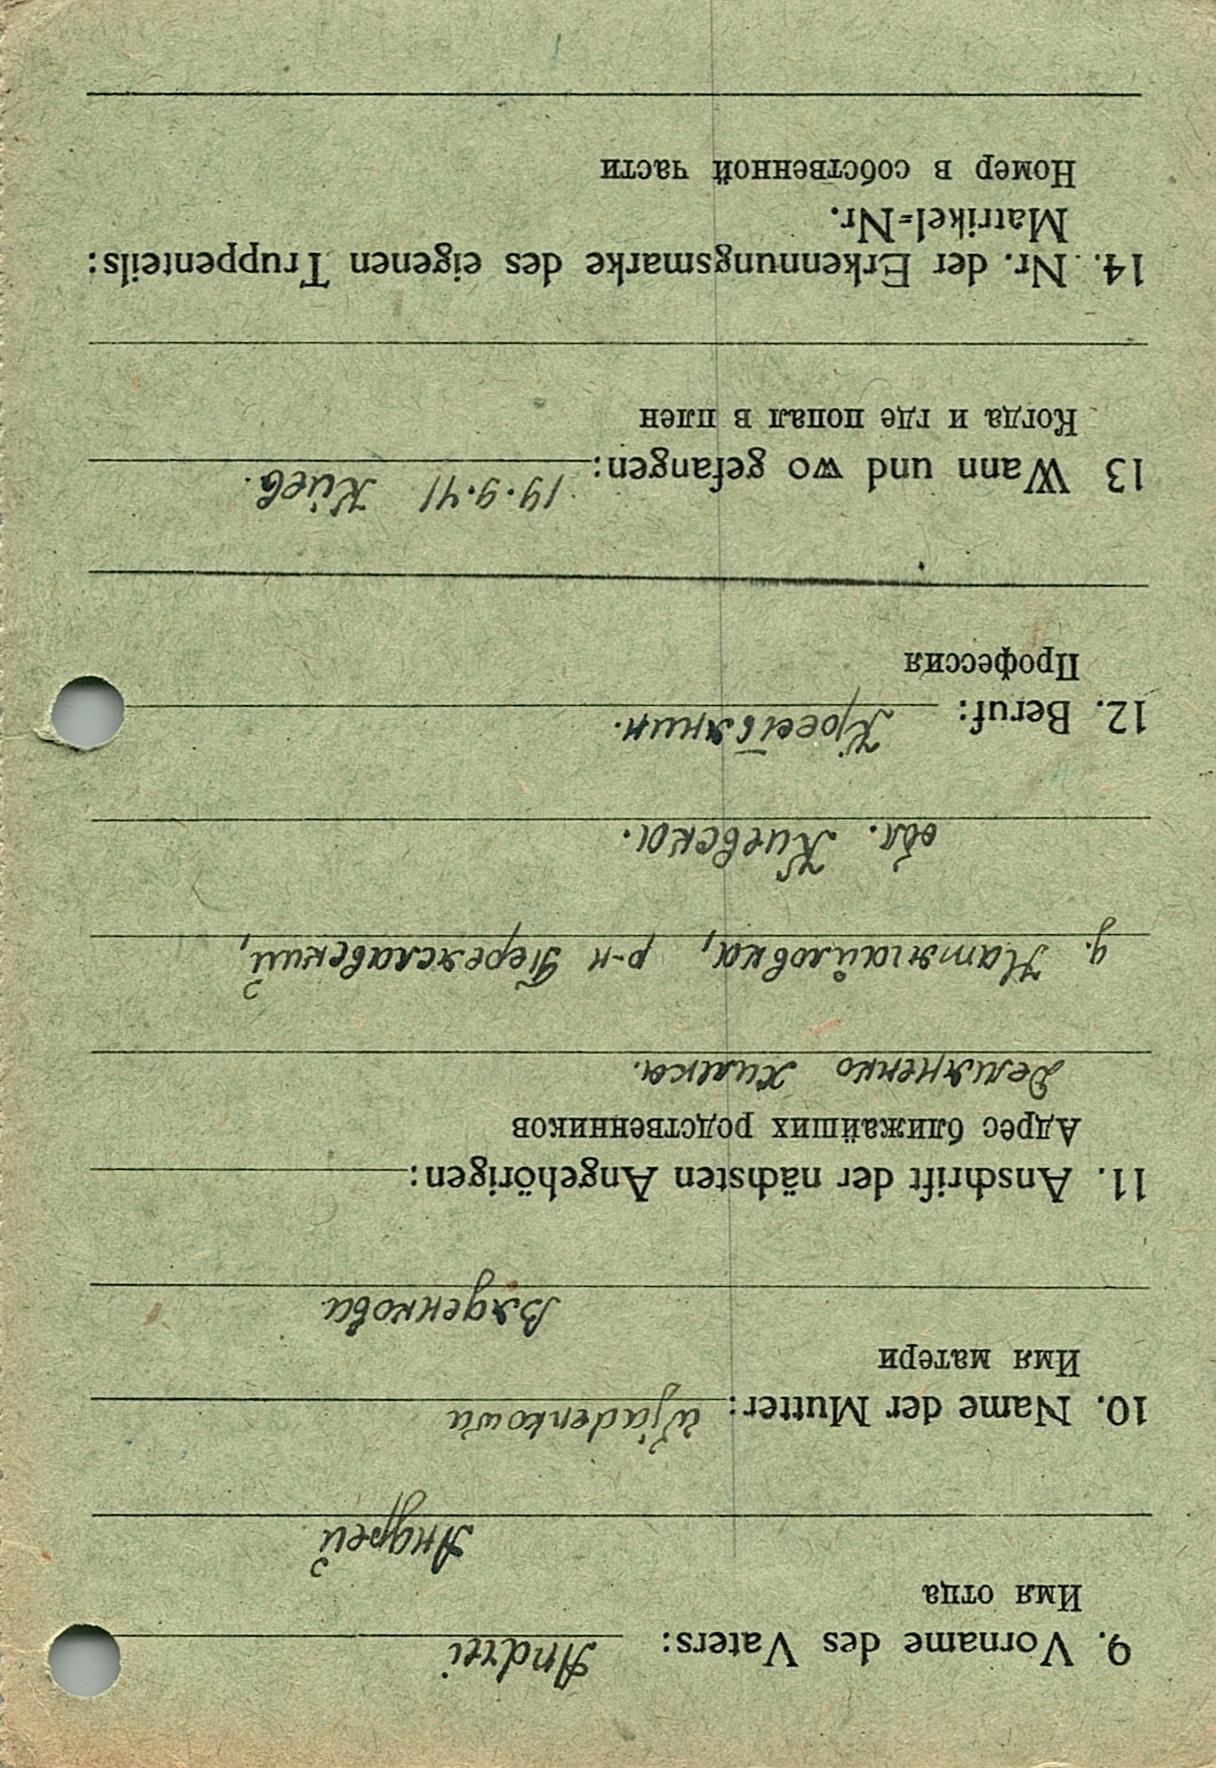 9. Vorname des Vaters: Andrei
Имя отца
Андрей
10. Name der Mutter: Wjadenkowa
Имя матери
Вяденкова
11. Anschrift der nächsten Angehörigen:
Адрес ближайших родственников
Демяненко
р-н Переяславский,
обл. Киевска.
12. Beruf: Крестьянин.
Профессия
13 Wann und wo gefangen: 19.9.41 Киев.
Когда и где попал в плен
14. Nr. der Erkennungsmarke des eigenen Truppenteils:
Matrikel-Nr.
Номер в собственной части